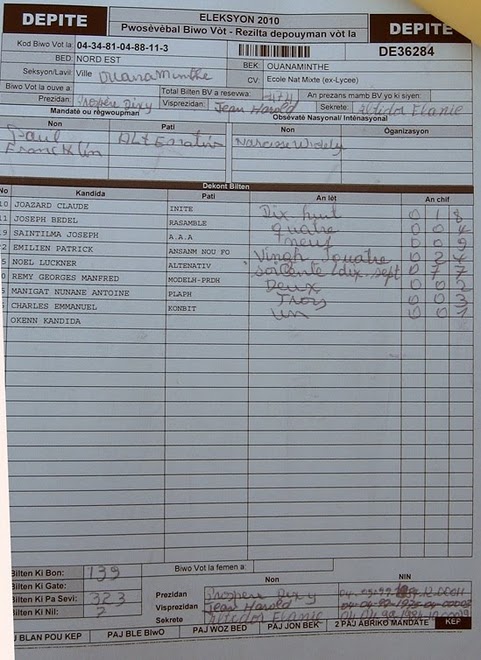 DEPITE
ELEKSYON 2010
DEPITE
Pwosèvèbal Biwo Vòt - Rezilta depouyman vòt la
Kod Biwo Vot la: 04-34-81-04-88-11-3
DE36284
BED: NORD EST
BEK: OUANAMINTHE
Seksyon/Lavil: Ville Ouanaminthe
CV: Ecole Nat Mixte (ex-Lycee)
Biwo Vot la ouve a:
Total Bilten BV a resevwa:
An prezans mamb BV yo ki siyen:
Prezidan: Prospere Dixy
Visprezidan: Jean Harold
Sekrete: Altidor Elanie
Mandatè ou règwoupman
Obsèvatè Nasyonal/ Intènasyonal
Non Pati Non Óganizasyon
Paul Francklin
Narcisse Widely
Dekont Bilten
No Kandida Pati An lèt An chif
10 JOAZARD CLAUDE INITE Dix huit 0 1 8
11 JOSEPH BEDEL RASAMBLE quatre 0 0 4
19 SAINTILMA JOSEPH A.A.A neuf 0 0 9
EMILIEN PATRICK ANSANM NOU FO Vingt quatre 0 2 4
NOEL LUCKNER ALTENATIV soixante dix-sept 0 7 7
REMY GEORGES MANFRED MODELH-PRDH Deux 0 0 2
MANIGAT NUNANE ANTOINE PLAPH Trois 0 0 3
CHARLES EMMANUEL KONBIT Un 0 0 1
OKENN KANDIDA
Biwo Vot la femen a:
Bilten Ki Bon: 139
Bilten Ki Gate:
Bilten Ki Pa Sevi: 323
Bilten Ki Nil: 2
Non NIN
Prezidan Prospere Dixy
Visprezidan Jean Harold
Sekrete Altidor Elanie
BLAN POU KEP PAJ BLE BIWO PAJ WOZ BED PAJ JON BEK 2 PAJ ABRIKO MANDATE KEP